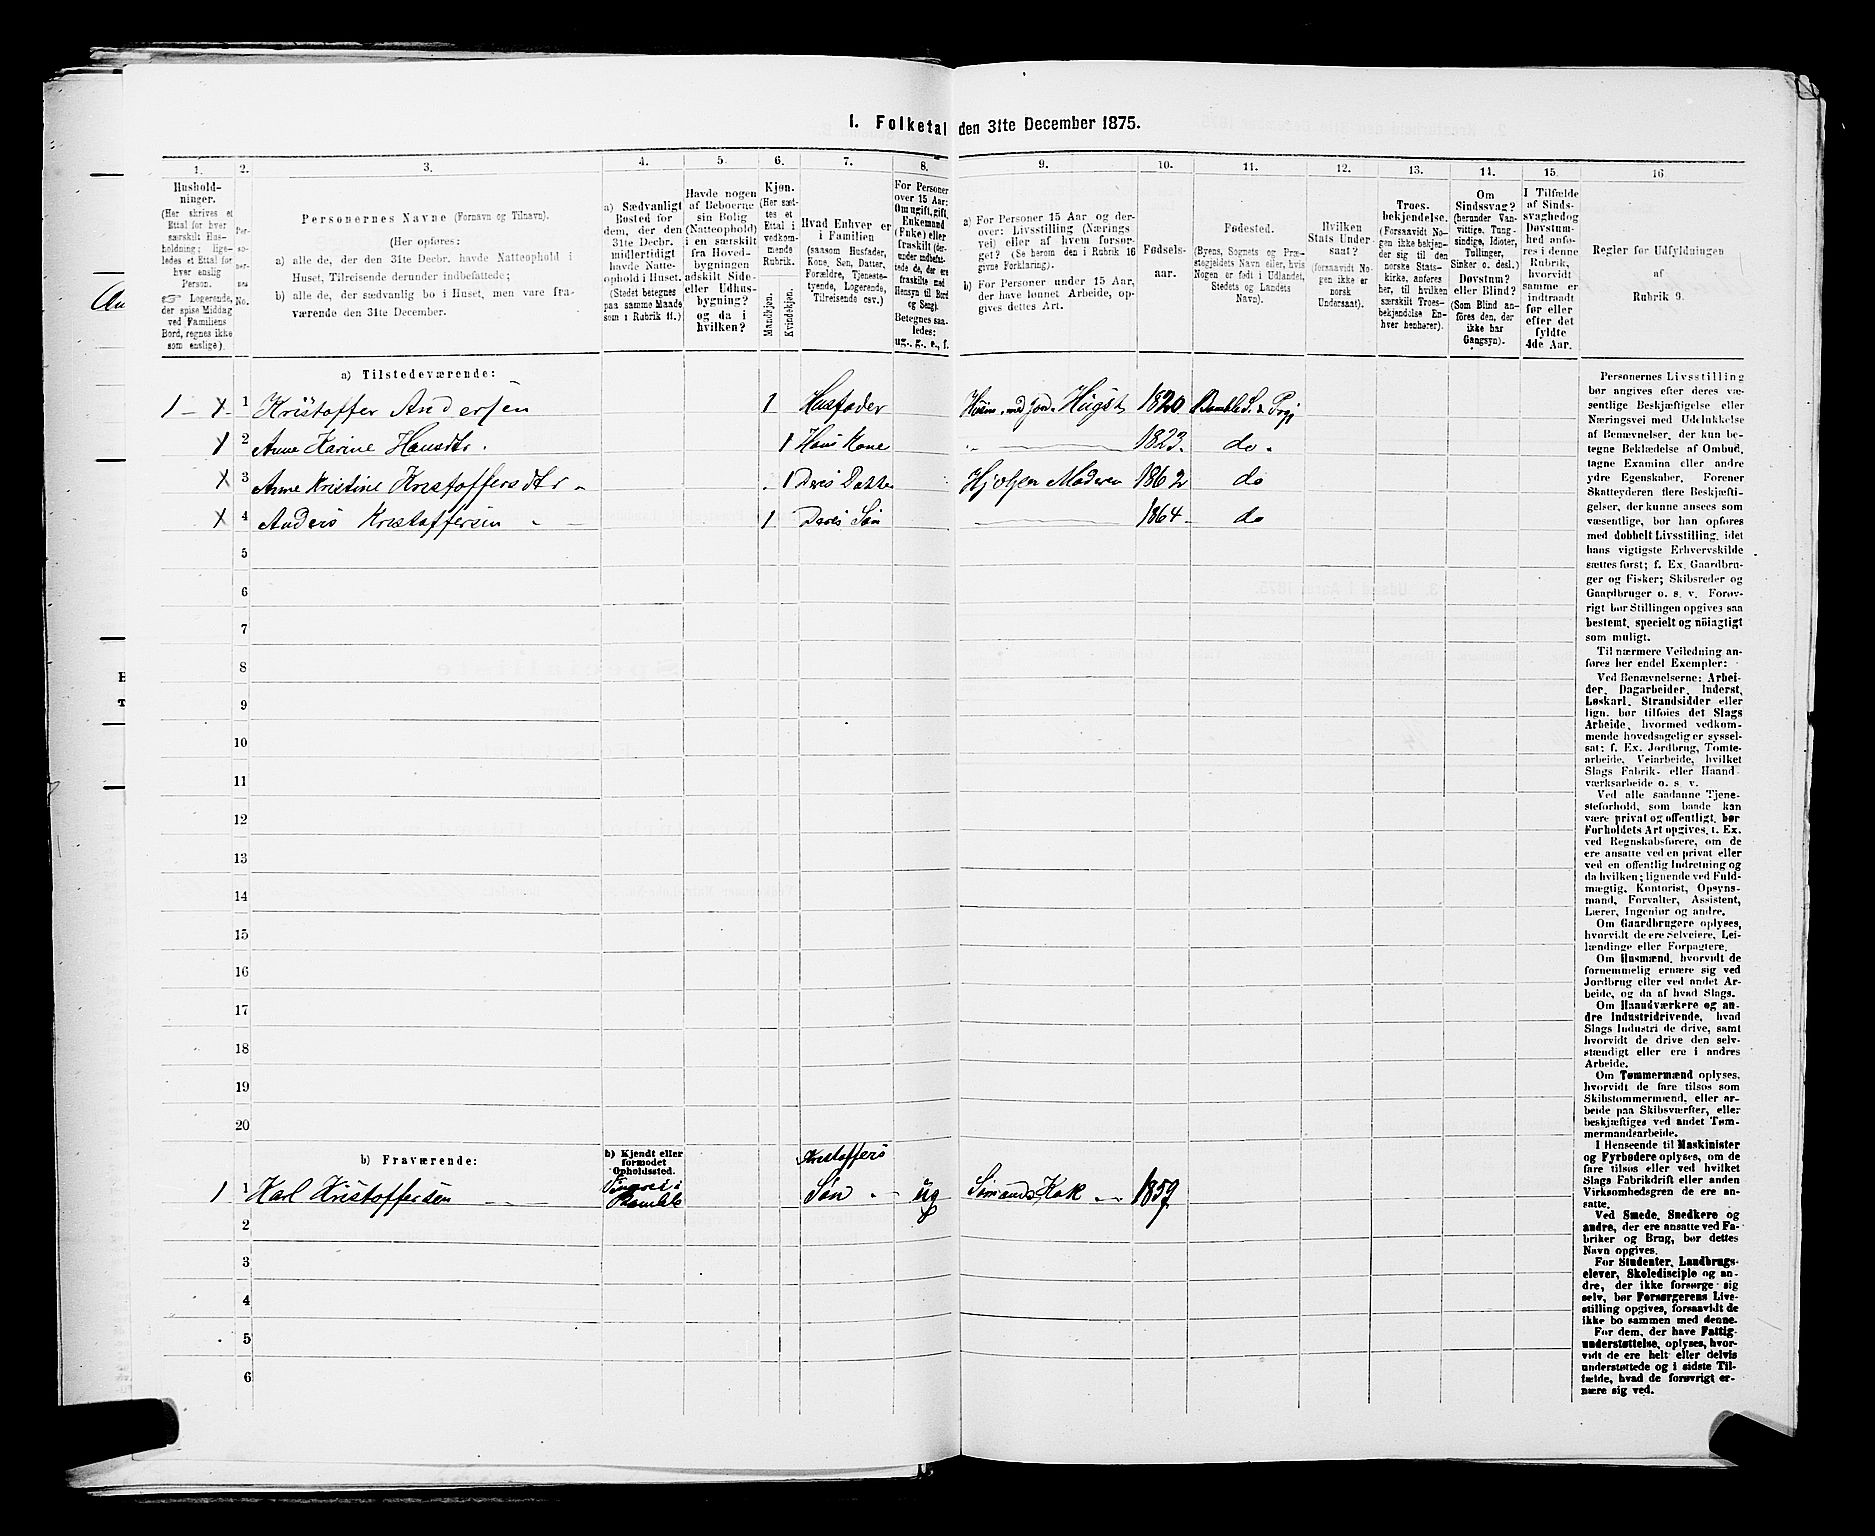 I. Folketal den 31te December 1875.
1. 2. 3. 4. 5. 6. 7. 8. 9. 10. 11. 12. 13. 14. 15. 16
Hushold-
ninger.
(Her skrives et
Ettal for hver
særskilt Hus-
holdning; lige-
ledes et Ettal for
hver enslig
Person.
☞ Logerende,
der spise Middag
ved Familiens
Bord, regnes ikke
som enslige).
Per-
so-
ner-
nes
No.
Personernes Navne (Fornavn og Tilnavn).
(Her opføres:
a) alle de, der den 31te Decbr. havde Natteophold i
Huset, Tilreisende derunder indbefattede;
b) alle de, der sædvanlig bo i Huset, men vare fra-
værende den 31te December.
a) Sædvanligt
Bosted for
dem, der den
31te Decbr.
midlertidigt
havde Natte-
ophold i Huset.
(Stedet betegnes
paa samme Maade
som i Rubrik 11.)
Havde nogen
af Beboerne
sin Bolig
(Natteophold)
i en særskilt
fra Hoved-
bygningen
adskilt Side-
eller Udhus-
bygning?
og da i
hvilken?
Kjøn.
(Her sæt-
tes et
Ettal i
vedkom-
mende
Rubrik.
Mandkjøn.
Kvindekjøn.
Hvad Enhver er
i Familien
(saasom Husfader,
Kone, Søn, Datter,
Forældre, Tjeneste-
tyende, Logerende,
Tilreisende osv.)
For Personer
over 15 Aar:
Om ugift, gift,
Enkemand
(Enke) eller
fraskilt (der-
under indbefat-
tede de, der ere
fraskilte med
Hensyn til Bord
og Seng).
Betegnes saa-
ledes:
ug., g., e., f.
a) For Personer 15 Aar og der-
over: Livsstilling (Nærings
vei) eller af hvem forsør-
get? (Se herom den i Rubrik 16
givne Forklaring).
b) For Personer under 15 Aar,
der have lønnet Arbeide, op-
gives dettes Art.
Fødsels-
aar.
Fødested.
(Byens, Sognets og Præ-
stegjeldets Navn eller, hvis
Nogen er født i Udlandet,
Stedets og Landets
Navn).
Hvilken
Stats Under-
saat?
(forsaavidt No-
gen ikke er
norsk
Undersaat).
Troes-
bekjendelse.
(Forsaavidt No-
gen ikke bekjen-
der sig til den
norske Stats-
kirke, anføres
her, til hvilken
særskilt Troes-
bekjendelse En-
hver henhører).
Om
Sindssvag?
(herunder Van-
vittige, Tung-
sindige, Idioter,
Tullinger,
Sinker o. desl.)
Døvstum?
eller Blind?
(Som Blind an-
føres den, der
ikke har
Gangsyn).
I Tilfælde
af Sinds-
svaghed og
Døvstum-
hed anfø-
res i denne
Rubrik,
hvorvidt
samme er
indtraadt
før eller
efter det
fyldte
4de Aar.
Regler for Udfyldningen
af
Rubrik 9.
a) Tilstedeværende:
1 1 Kristoffer Andersen 1 Husfader 1820
2 Anne Karine Hansdtr. 1 Hans Kone 1823. do.
3 Anne Kristine Kristoffersdtr 1 Deres 1862 do
4 Anders Kristoffersen 1 Deres Søn 1864 do
5
6
7
8
9
10
11
12
13
14
15
16
17
18
19
20
b) Fraværende:
b) Kjendt eller
formodet
Opholdssted.
Kristoffers
1 1 Karl Kristoffersen Bamble Søn ug 1859
2
3
4
5
6
Personernes Livsstilling
bør angives efter deres væ-
sentlige Beskjæftigelse eller
Næringsvei med Udelukkelse
af Benævnelser, der kun be-
tegne Beklædelse af Ombud,
tagne Examina eller andre
ydre Egenskaber. Forener
Skatteyderen flere Beskjæfti-
gelser, der kunne ansees som
væsentlige, bør han opføres
med dobbelt Livsstilling, idet
hans vigtigste Erhvervskilde
sættes først; f. Ex. Gaardbru-
ger og Fisker; Skibsreder og
Gaardbruger o. s. v. Forøv-
rigt bør Stillingen opgives saa
bestemt, specielt og nøiagtigt
som muligt.
Til nærmere Veiledning an-
føres her endel Exempler:
Ved Benævnelserne: Arbei-
der, Dagarbeider, Inderst,
Løskarl, Strandsidder eller
lign. bør tilføies det Slags
Arbeide, hvormed vedkom-
mende hovedsagelig er syssel-
sat; f. Ex. Jordbrug, Tomte-
arbeide, Veiarbeide, hvilket
Slags Fabrik- eller Haand-
værksarbeide o. s. v.
Ved alle saadanne Tjene-
steforhold, som baade kan
være privat og offentligt, bør
Forholdets Art opgives, t. Ex.
ved Regnskabsførere, om de
ere ansatte ved en privat eller
ved en offentlig Indretning og
da hvilken; lignende ved Fuld-
mægtig, Kontorist, Opsyns-
mand, Forvalter, Assistent,
Lærer, Ingeniør og andre.
Om Gaardbrugere oplyses,
hvorvidt de ere Selveiere, Lei-
lændinge eller Forpagtere.
Om Husmænd, hvorvidt de
fornemmelig ernære sig ved
Jordbrug eller ved andet Ar-
beide, og da af hvad Slags.
Om Haandværkere og an-
dre Industridrivende, hvad
Slags Industri de drive, samt
hvorvidt de drive den selv-
stændigt eller ere i andres
Arbeide.
Om Tømmermænd oplyses,
hvorvidt de fare tilsøs som
Skibstømmermænd, eller ar-
beide paa Skibsværfter, eller
beskjæftiges ved andet Tøm-
mermandsarbeide.
I Henseende til Maskinister
og Fyrbødere oplyses, om de
fare tilsøs eller ved hvilket
Slags Fabrikdrift eller anden
Virksomhedsgren de ere an-
satte.
Ved Smede, Snedkere og
andre, der ere ansatte ved Fa-
briker og Brug, bør dettes
Navn opgives.
For Studenter, Landbrugs-
elever, Skoledisciple og an-
dre, der ikke forsørge sig
selv, bør Forsørgerens Live-
stilling opgives, forsaavidt de
ikke bo sammen med denne.
For dem, der have Fattig-
understøttelse, oplyses, hvor-
vidt de ere helt eller delvis
understøttede og i sidste Til-
fælde, hvad de forøvrigt er-
nære sig ved.